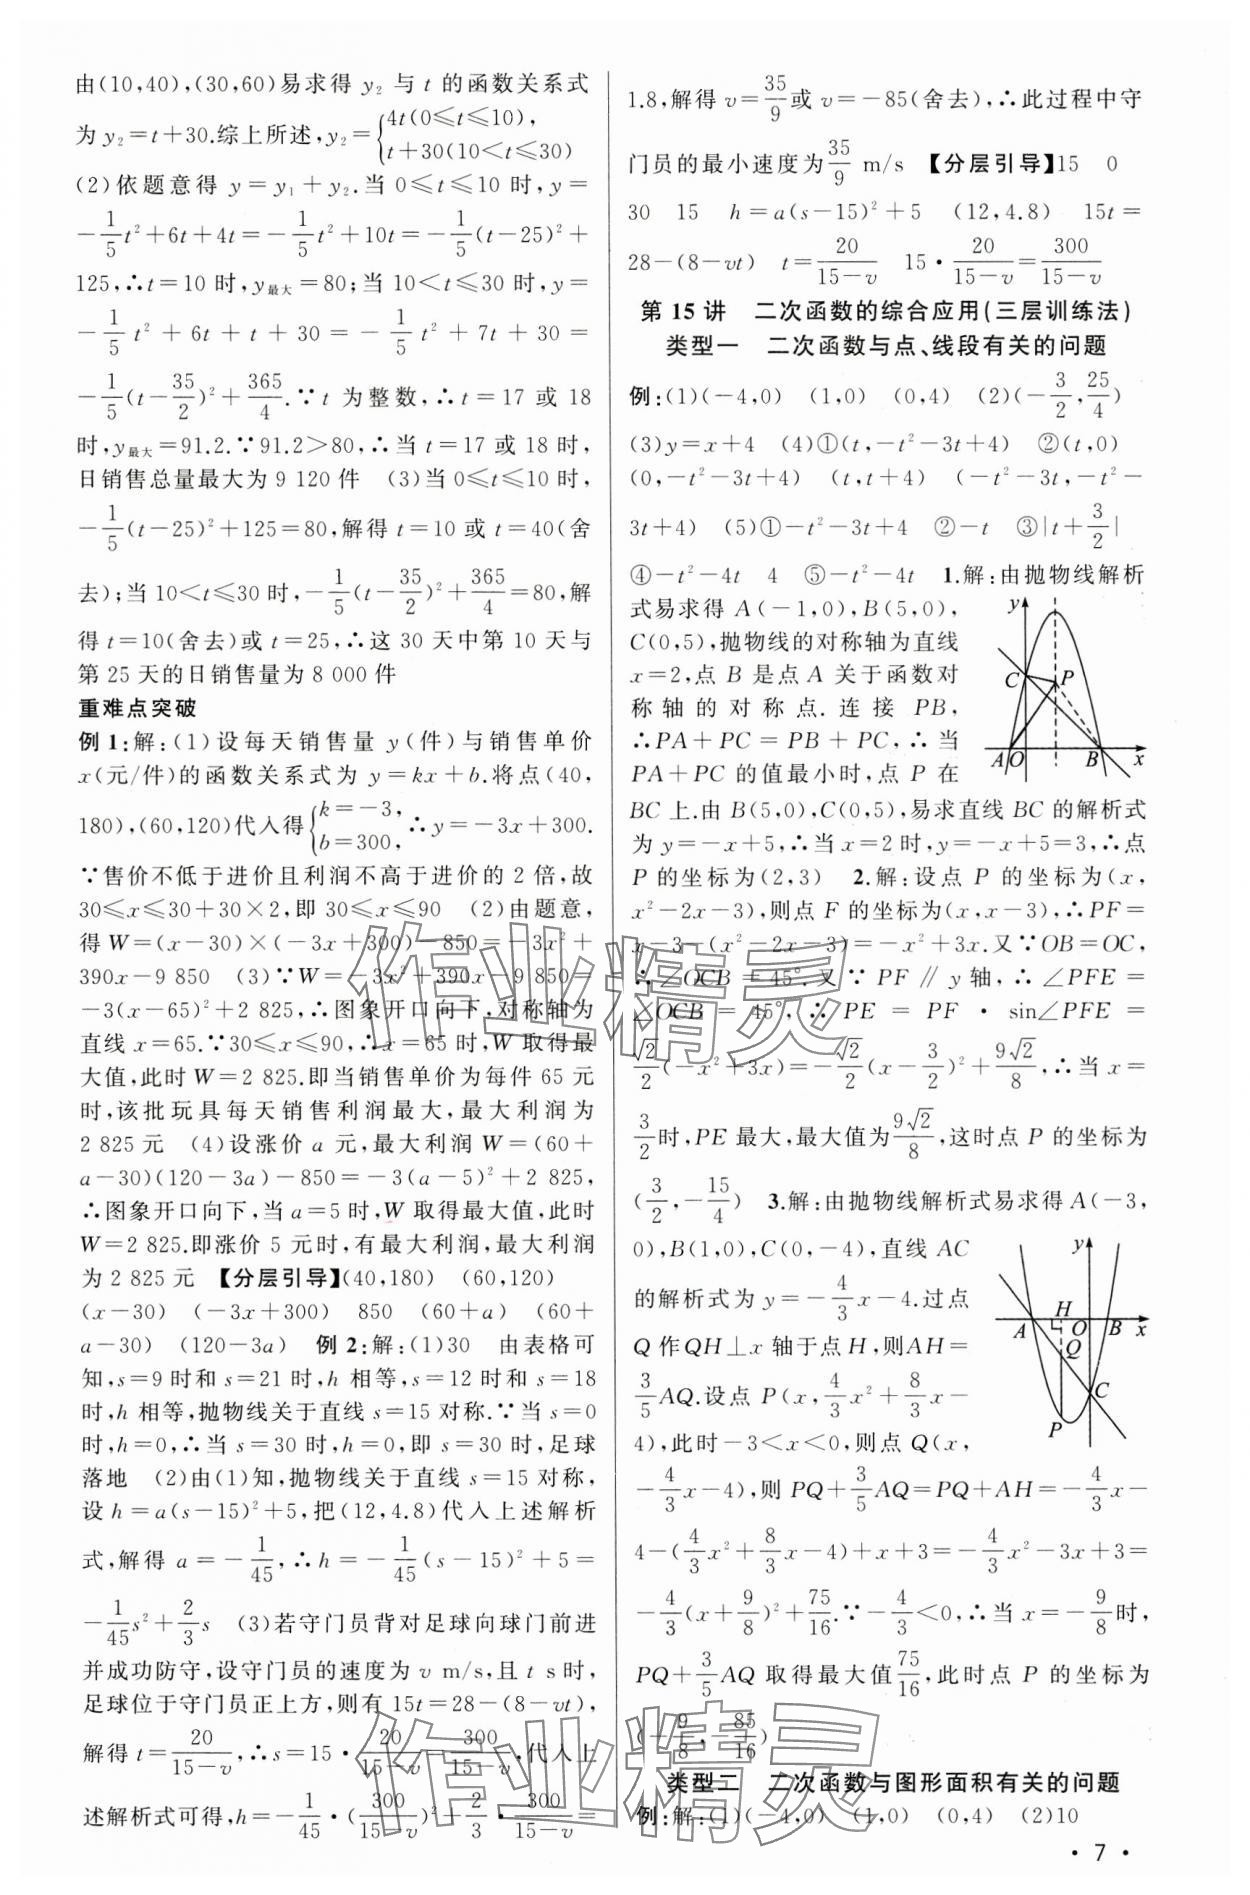 由(10,40),(30,60)易求得 y₂ 与 t 的函数关系式
为 y₂=t+30.综上所述,y₂={4t(0≤t≤10), t+30(10<t≤30)
(2)依题意得 y=y₁+y₂.当 0≤t≤10 时,y=
-1/5t²+6t+4t=-1/5t²+10t=-1/5(t-25)²+
125,∴t=10 时,y最大=80;当 10<t≤30 时,y=
-1/5t²+6t+t+30=-1/5t²+7t+30=
-1/5(t-35/2)²+365/4.∵t 为整数,∴t=17 或 18
时,y最大=91.2.∵91.2>80,∴当 t=17 或 18 时,
日销售总量最大为 9 120 件 (3)当 0≤t≤10 时,
-1/5(t-25)²+125=80,解得 t=10 或 t=40(舍
去);当 10<t≤30 时,-1/5(t-35/2)²+365/4=80,解
得 t=10(舍去)或 t=25,∴这 30 天中第 10 天与
第 25 天的日销售量为 8 000 件
重难点突破
例 1:解:(1)设每天销售量 y(件)与销售单价
x(元/件)的函数关系式为 y=kx+b.将点(40,
180),(60,120)代入得{k=-3, b=300, ∴y=-3x+300.
∵售价不低于进价且利润不高于进价的 2 倍,故
30≤x≤30+30×2,即 30≤x≤90 (2)由题意,
得 W=(x-30)×(-3x+300)-850=-3x²+
390x-9 850 (3)∵W=-3x²+390x-9 850=
-3(x-65)²+2 825,∴图象开口向下,对称轴为
直线 x=65.∵30≤x≤90,∴x=65 时,W 取得最
大值,此时 W=2 825.即当销售单价为每件 65 元
时,该批玩具每天销售利润最大,最大利润为
2 825 元 (4)设涨价 a 元,最大利润 W=(60+
a-30)(120-3a)-850=-3(a-5)²+2 825,
∴图象开口向下,当 a=5 时,W 取得最大值,此时
W=2 825.即涨价 5 元时,有最大利润,最大利润
为 2 825 元 【分层引导】(40,180) (60,120)
(x-30) (-3x+300) 850 (60+a) (60+
a-30) (120-3a) 例 2:解:(1)30 由表格可
知,s=9 时和 s=21 时,h 相等,s=12 时和 s=18
时,h 相等,抛物线关于直线 s=15 对称.∵当 s=0
时,h=0,∴当 s=30 时,h=0,即 s=30 时,足球
落地 (2)由(1)知,抛物线关于直线 s=15 对称,
设 h=a(s-15)²+5,把(12,4.8)代入上述解析
式,解得 a=-1/45,∴h=-1/45(s-15)²+5=
-1/45s²+2/3s (3)若守门员背对足球向球门前进
并成功防守,设守门员的速度为 v m/s,且 t s时,
足球位于守门员正上方,则有 15t=28-(8-vt),
解得 t=20/(15-v),∴s=15·20/(15-v)=300/(15-v),代入上
述解析式可得,h=-1/45·(300/(15-v))²+2/3·300/(15-v)=
1.8,解得 v=35/9或 v=-85(舍去),∴此过程中守
门员的最小速度为35/9 m/s 【分层引导】15 0
30 15 h=a(s-15)²+5 (12,4.8) 15t=
28-(8-vt) t=20/(15-v) 15·20/(15-v)=300/(15-v)
第 15 讲 二次函数的综合应用(三层训练法)
类型一 二次函数与点、线段有关的问题
例:(1)(-4,0) (1,0) (0,4) (2)(-3/2,25/4)
(3)y=x+4 (4)①(t,-t²-3t+4) ②(t,0)
(0,-t²-3t+4) (t,t+4) (-t²-3t,-t²-
3t+4) (5)①-t²-3t+4 ②-t ③|t+3/2|
④-t²-4t 4 ⑤-t²-4t 1.解:由抛物线解析
式易求得 A(-1,0),B(5,0),
C(0,5),抛物线的对称轴为直线
x=2,点 B 是点 A 关于函数对
称轴的对称点.连接 PB,
∴PA+PC=PB+PC,∴当
PA+PC 的值最小时,点 P 在
y
C
P
A
O
B
x
BC 上.由 B(5,0),C(0,5),易求直线 BC 的解析式
为 y=-x+5,∴当 x=2 时,y=-x+5=3,∴点
P 的坐标为(2,3) 2.解:设点 P 的坐标为(x,
x²-2x-3),则点 F 的坐标为(x,x-3),∴PF=
x-3-(x²-2x-3)=-x²+3x.又∵OB=OC,
∴∠OCB=45°.又∵PF∥y 轴,∴∠PFE=
∠OCB=45°,∴PE=PF·sin∠PFE=
√2/2(-x²+3x)=-√2/2(x-3/2)²+9√2/8,∴当 x=
3/2时,PE 最大,最大值为9√2/8,这时点 P 的坐标为
(3/2,-15/4) 3.解:由抛物线解析式易求得 A(-3,
0),B(1,0),C(0,-4),直线 AC
的解析式为 y=-4/3x-4.过点
Q 作 QH⊥x 轴于点 H,则AH=
3/5AQ.设点 P(x,4/3x²+8/3x-
4),此时-3<x<0,则点 Q(x,
y
H
A
O
B
x
Q
C
P
-4/3x-4),则 PQ+3/5AQ=PQ+AH=-4/3x-
4-(4/3x²+8/3x-4)+x+3=-4/3x²-3x+3=
-4/3(x+9/8)²+75/16.∵-4/3<0,∴当 x=-9/8时,
PQ+3/5AQ 取得最大值75/16,此时点 P 的坐标为
(-9/8,-85/16)
类型二 二次函数与图形面积有关的问题
例:解:(1)(-4,0) (1,0) (0,4) (2)10
· 7 ·
作业精灵
作业精灵